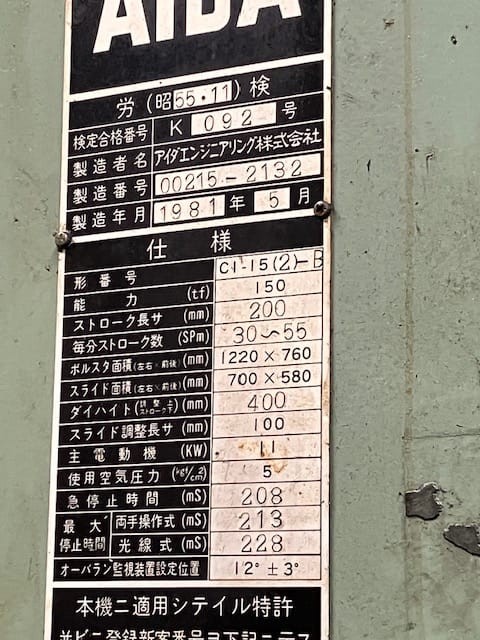 AIDA
労(昭55・11)検
検定合格番号 K 092 号
製造者名 アイダエンジニアリング株式会社
製造番号 00215-2132
製造年月 1981年5月
仕様
形番号 C1-15(2)-B
能力 (tf) 150
ストローク長サ (mm) 200
毎分ストローク数 (SPm) 30〜55
ボルスタ面積(左右×前後)(mm) 1220×760
スライド面積(左右×前後)(mm) 700×580
ダイハイト(調整上ストローク下)(mm) 400
スライド調整長サ (mm) 100
主電動機 (KW) 11
使用空気圧力 (kgf/cm²) 5
急停止時間 (mS) 208
最大停止時間 両手操作式 (mS) 213
光線式 (mS) 228
オーバラン監視装置設定位置 12°±3°
本機ニ適用シテイル特許
並ビニ登録新案番号ヲ下記ニテス